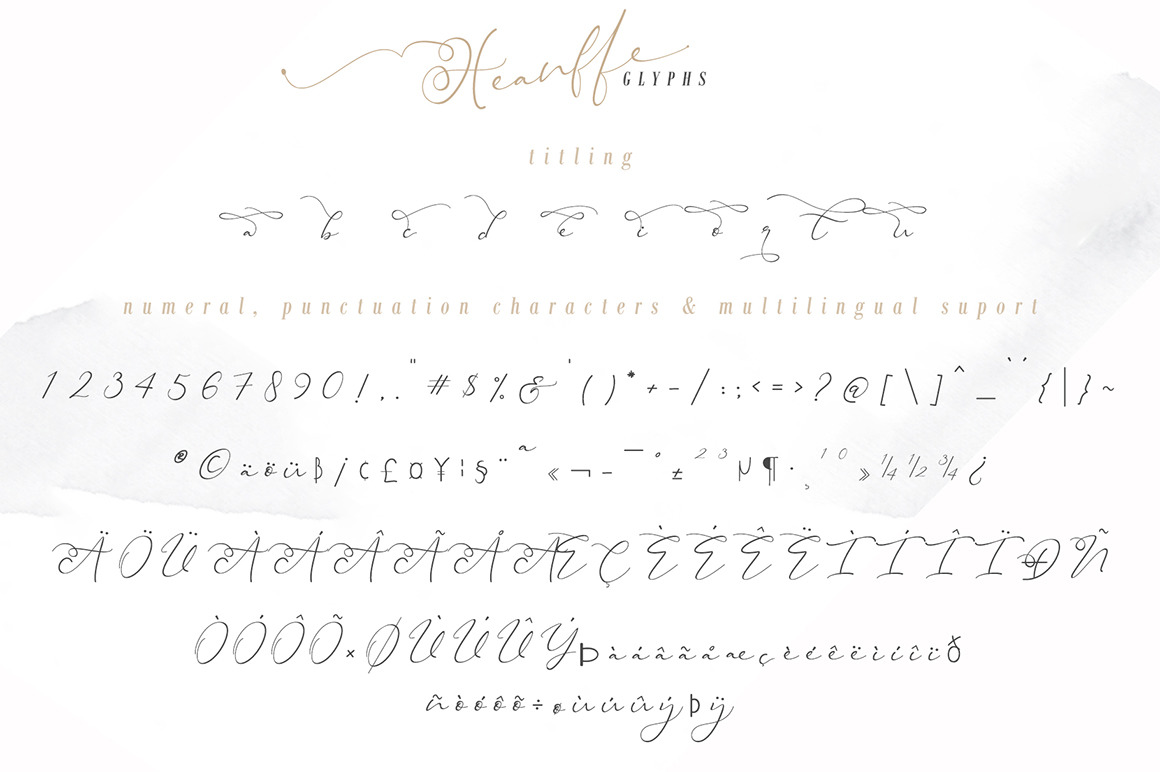 Heanffe GLYPHS
titling
a b c d e i o q t u
numeral, punctuation characters & multilingual suport
1 2 3 4 5 6 7 8 9 0 ! , . " # $ % & ' ( ) * + - / : ; < = > ? @ [ \ ] ^ _ ` ´ { | } ~
® © ä ö ü ß ¡ ¢ £ ¤ ¥ ¦ § ¨ ª « ¬ - ¯ ° ± ² ³ µ ¶ · ¸ ¹ º » ¼ ½ ¾ ¿
Ä Ö Ü À Á Â Ã Å Æ Ç È É Ê Ë Ì Í Î Ï Ð Ñ
Ò Ó Ô Õ × Ø Ù Ú Û Ý Þ à á â ã å æ ç è é ê ë ì í î ï ð
ñ ò ó ô õ ÷ ø ù ú û ý þ ÿ